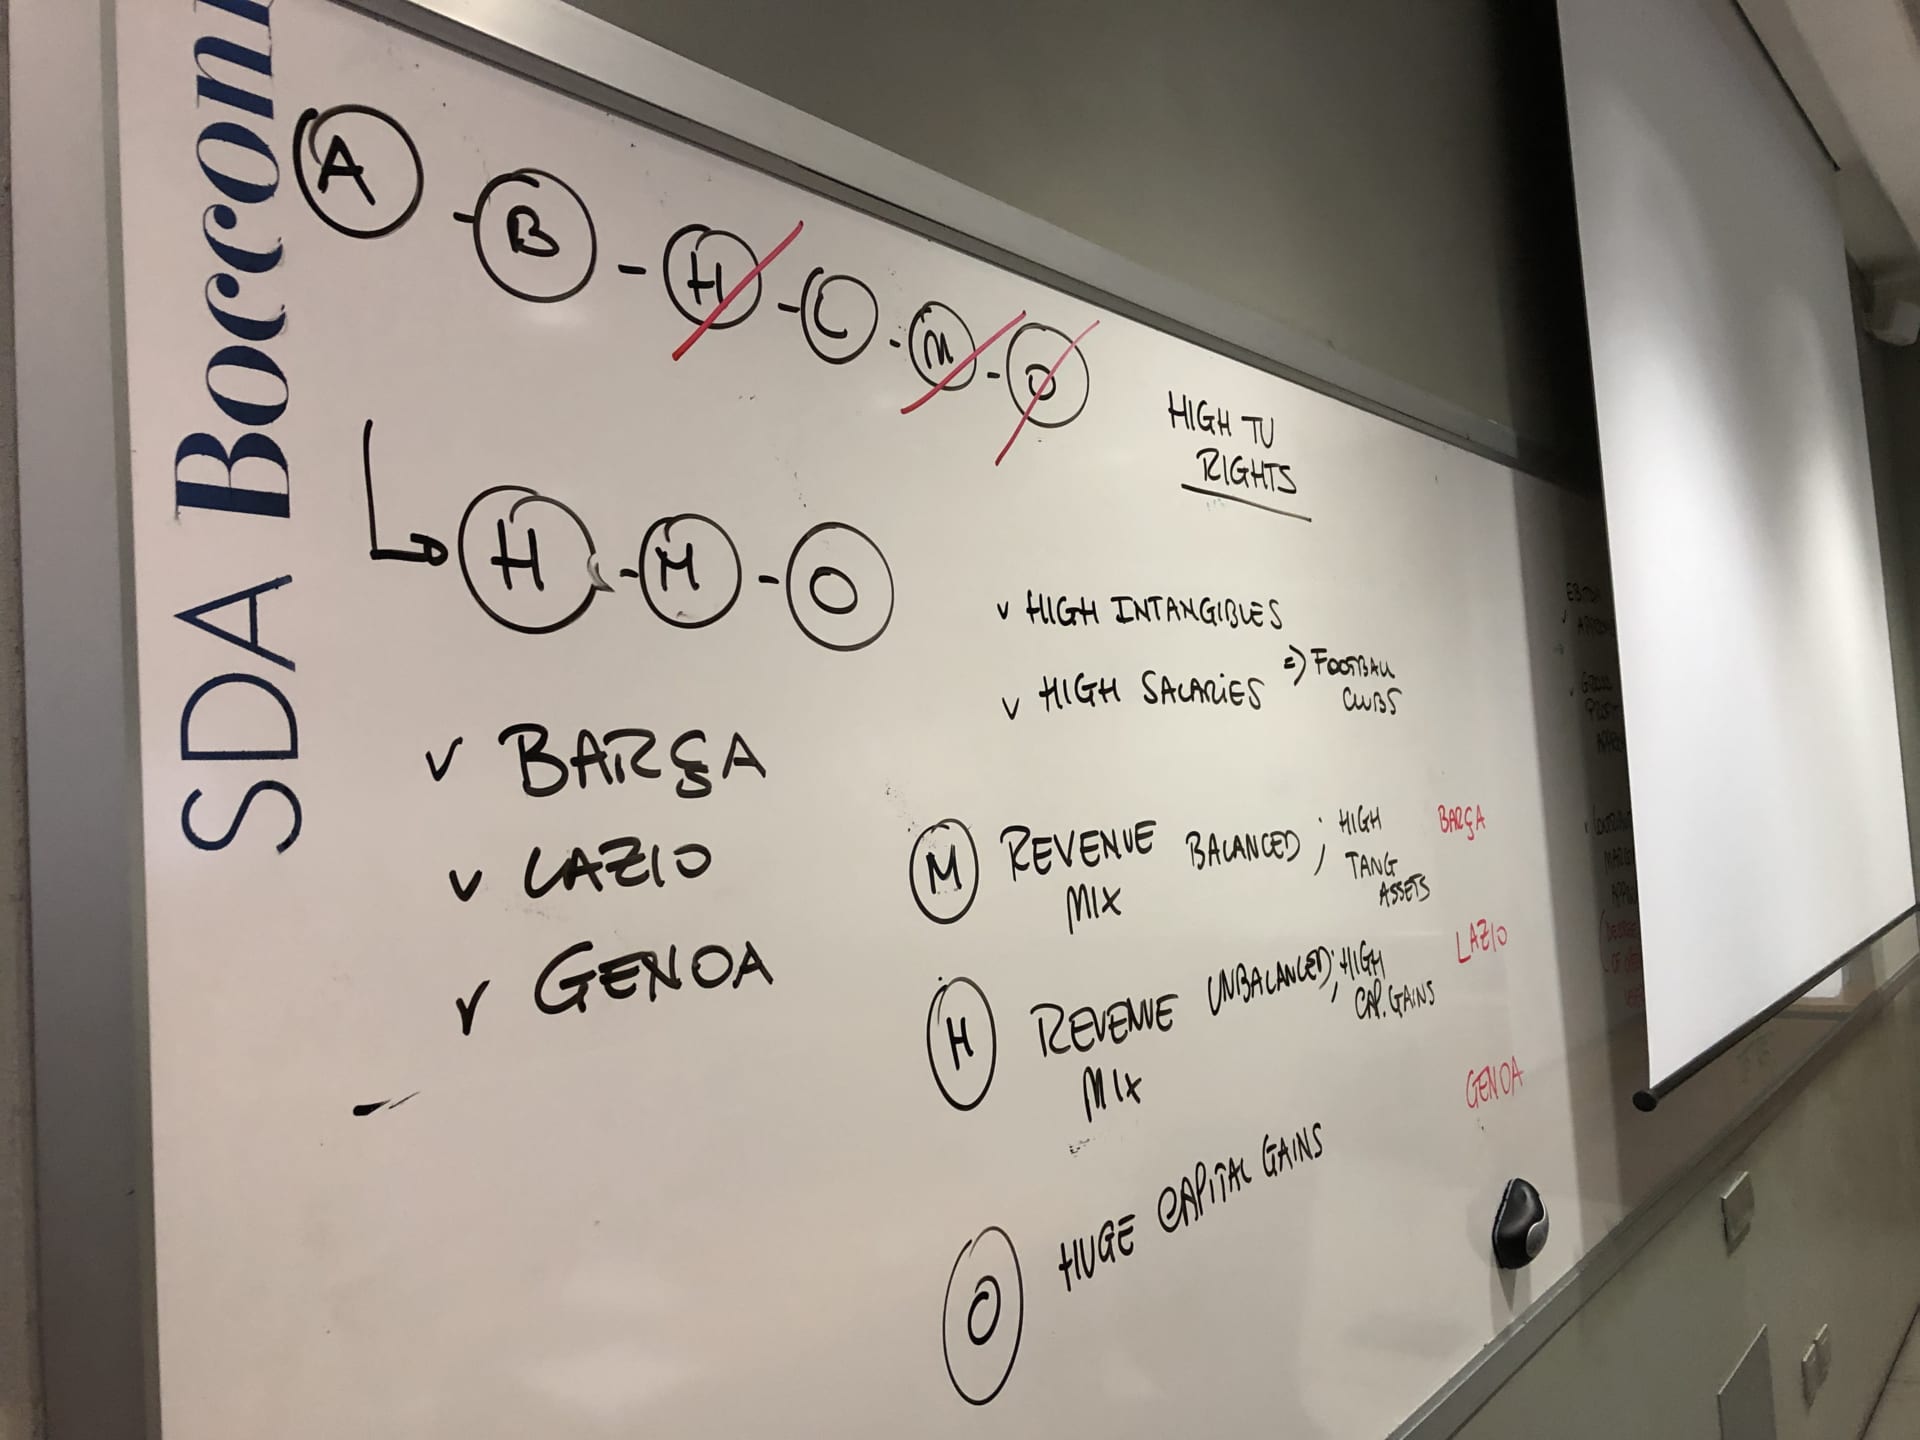 SDA Bocconi
A - B - H - C - M - O
H - M - O
HIGH TV
RIGHTS
v HIGH INTANGIBLES
v HIGH SALARIES => FOOTBALL
CLUBS
v BARÇA
v LAZIO
v GENOA
M REVENUE BALANCED ; HIGH
MIX TANG
ASSETS
BARÇA
H REVENUE UNBALANCED ; HIGH
MIX CAP. GAINS
LAZIO
O HUGE CAPITAL GAINS
GENOA